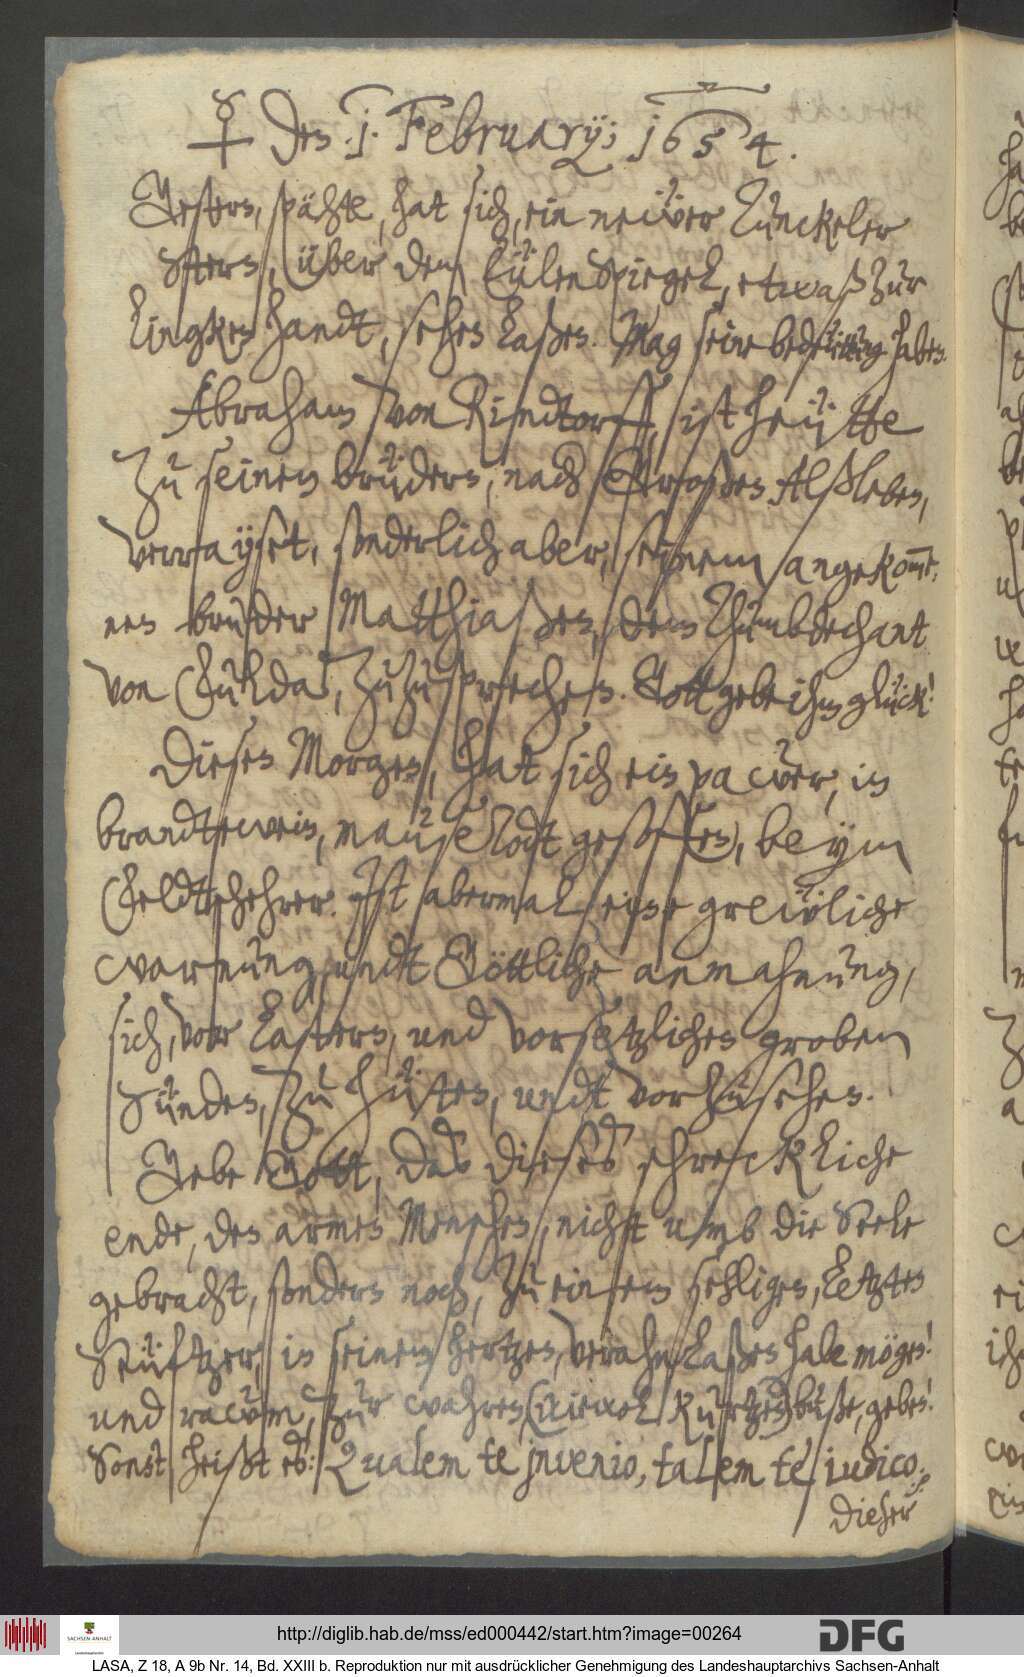 ♀ den 1. February; 1654.
Gestern, spähte, hat sich, ein newer Tunckeler
Stern, über dem Eülenspiegel, etwaß zur
Lincken handt, sehen laßen. Mag seine bedeüttung haben.
Abraham von Rindtorff, ist heütte
Zu seinen brüdern, nach Großen Alßleben,
verrayset, sonderlich aber, seinem angekomme-
nen bruder Matthiaßen, dem Thumbdechant
von Fulda, zuzusprechen. Gott gebe ihm glück!
Diesen Morgen, hat sich ein pawer, in
brandtewein, mausetodt gesoffen, beym
Feldtscheerer. Ist abermal eine grewliche
warnung, undt Göttliche anmahnung,
sich, vor Lastern, und vorsetzlichen groben
Sünden, zu hüten, undt vorzusehen.
Gebe Gott, das dieses schreckliche
ende, den armen Menschen, nicht umb die Seele
gebracht, sondern noch, zu einem sehligen, letzten
Seüftzer, in seinem hertzen, veranlaßen habe mögen!
und rawm, zur wahren (wiewol kurtzen) buße, geben!
Sonst heißt es: Qualem te jnvenio, talem te iudico.
Dieser
http://diglib.hab.de/mss/ed000442/start.htm?image=00264
SACHSEN-ANHALT
Landeshauptarchiv
DFG
LASA, Z 18, A 9b Nr. 14, Bd. XXIII b. Reproduktion nur mit ausdrücklicher Genehmigung des Landeshauptarchivs Sachsen-Anhalt